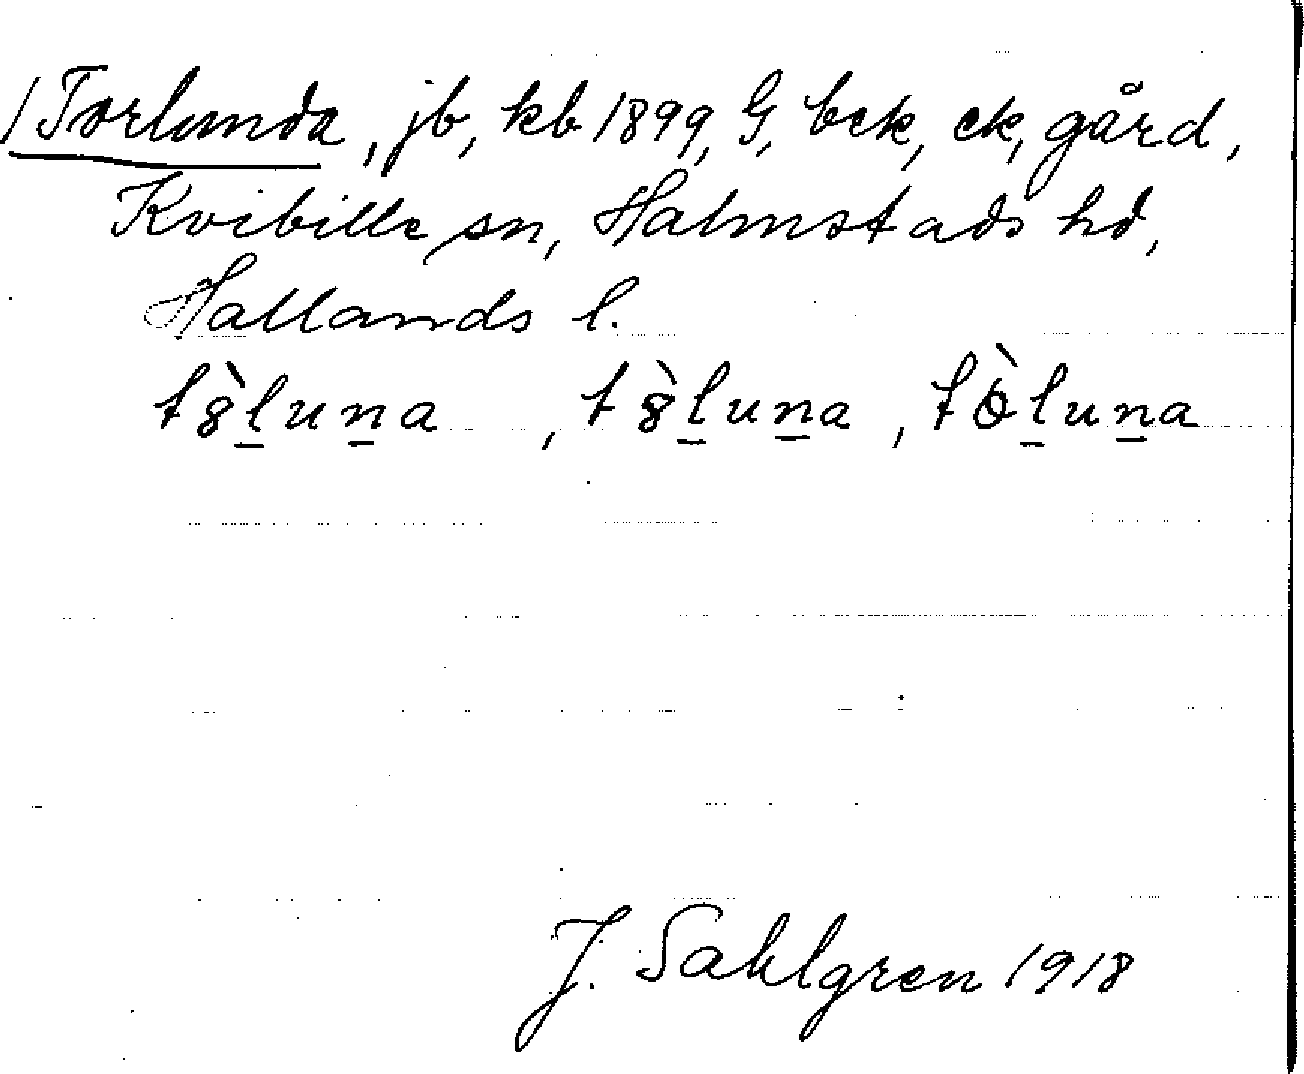 /Torlunda, jb, kb 1899, G, bck, ck, gård,
Kvibille sn, Halmstads hd,
Hallands l.
t8̀l̲un̲a, t8̀l̲un̲a, tòl̲un̲a
J. Sahlgren 1918